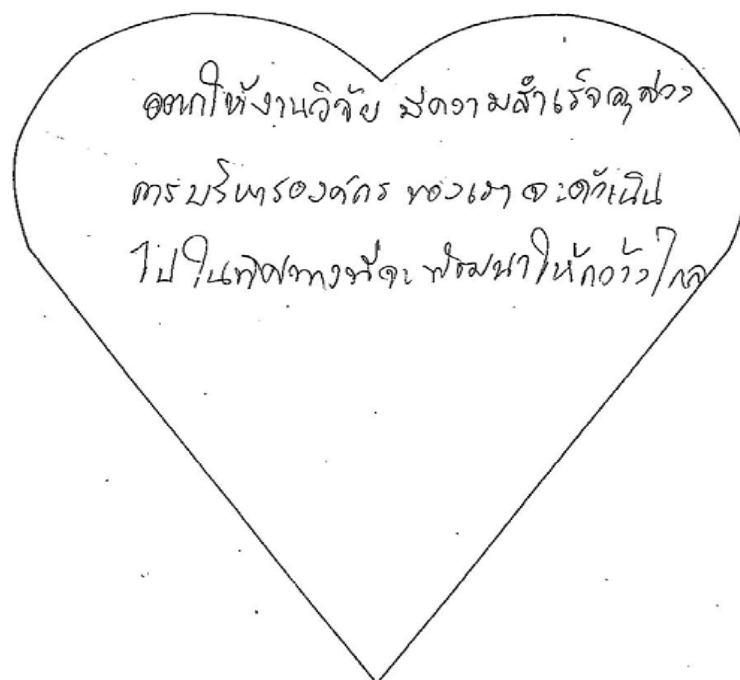 อยากให้งานวิจัย มีความสำเร็จลุล่วง
การบริหารองค์กร ของเรา จะดำเนิน
ไปในทิศทางที่จะพัฒนาให้กว้างไกล